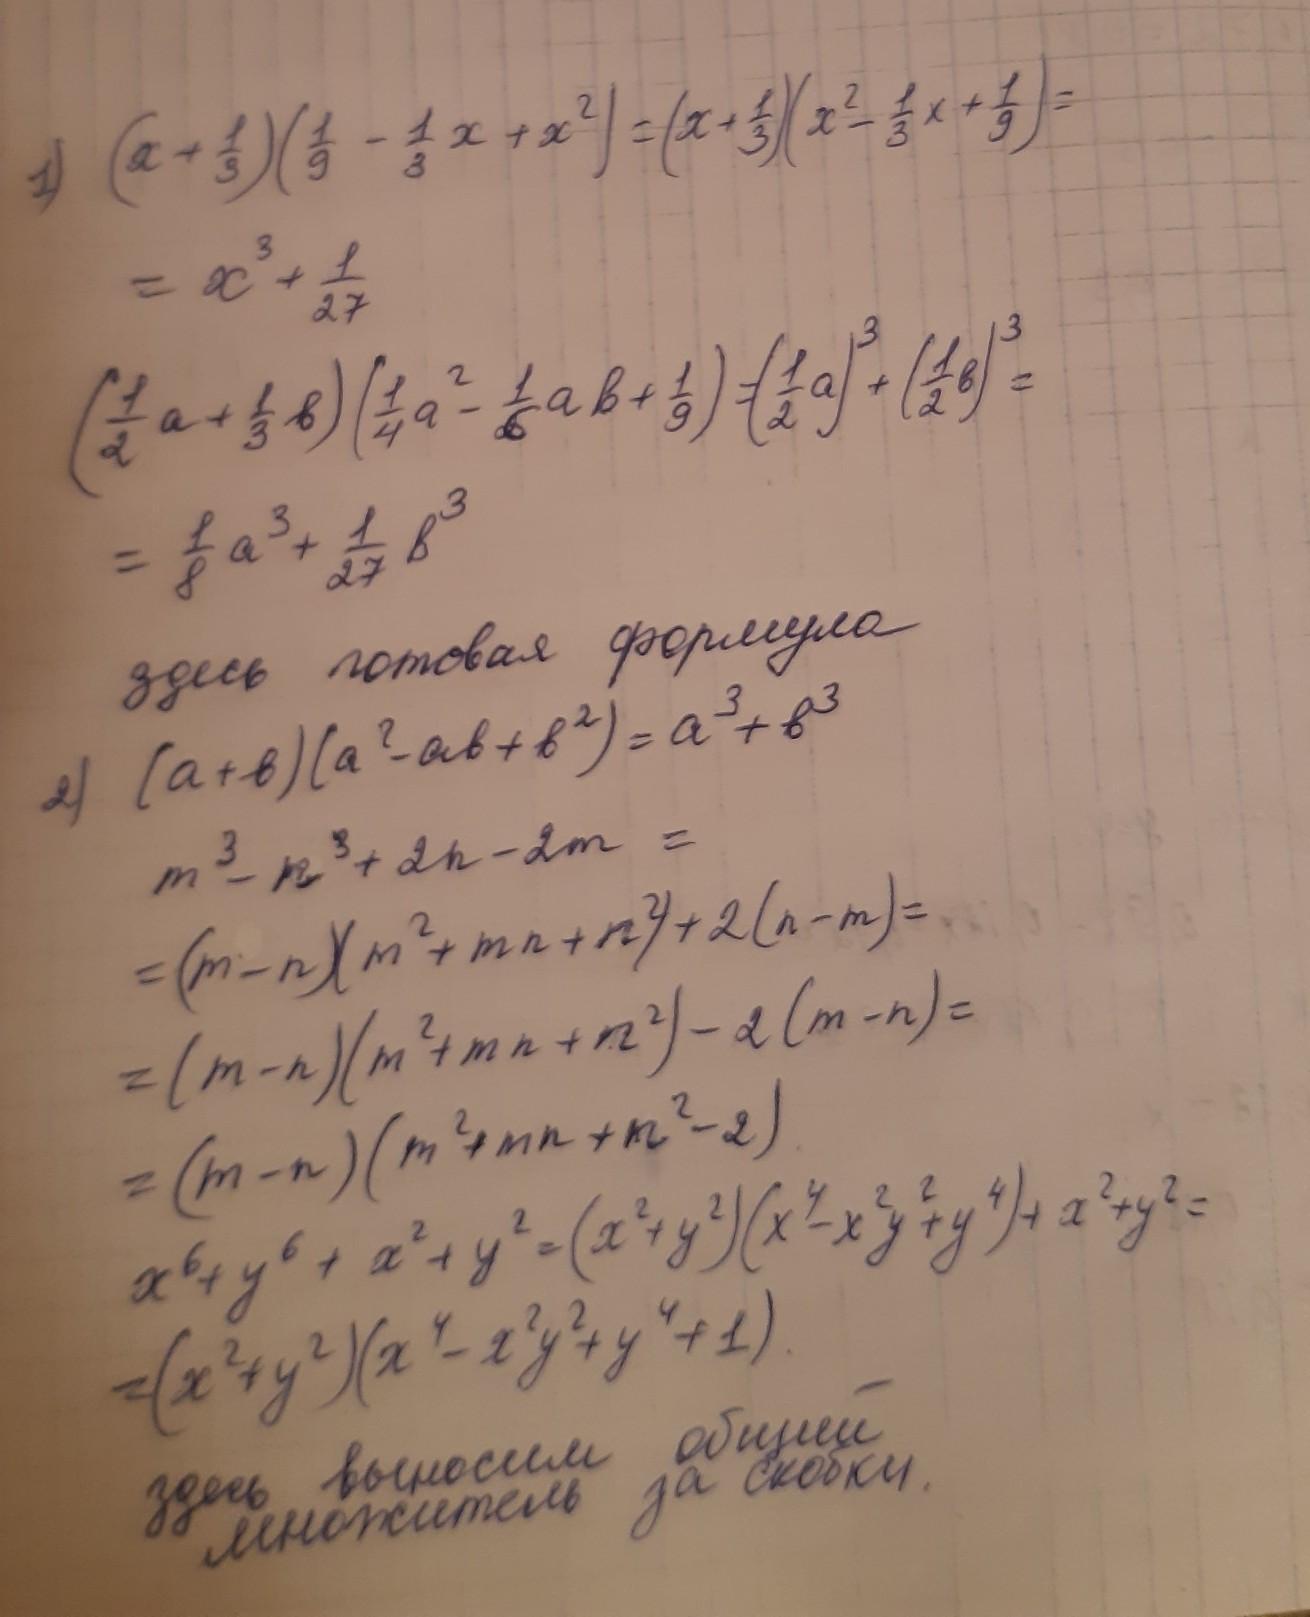 1) (x + 1/3)(1/9 - 1/3 x + x²) = (x + 1/3)(x² - 1/3 x + 1/9) =
= x³ + 1/27
(1/2 a + 1/3 в)(1/4 a² - 1/6 a в + 1/9) = (1/2 a)³ + (1/2 в)³ =
= 1/8 a³ + 1/27 в³
здесь готовая формула
2) (a + в)(a² - aв + в²) = a³ + в³
m³ - n³ + 2n - 2m =
= (m - n)(m² + mn + n²) + 2(n - m) =
= (m - n)(m² + mn + n²) - 2(m - n) =
= (m - n)(m² + mn + n² - 2)
x⁶ + y⁶ + x² + y² = (x² + y²)(x⁴ - x²y² + y⁴) + x² + y² =
= (x² + y²)(x⁴ - x²y² + y⁴ + 1).
здесь выносим общий
множитель за скобки.